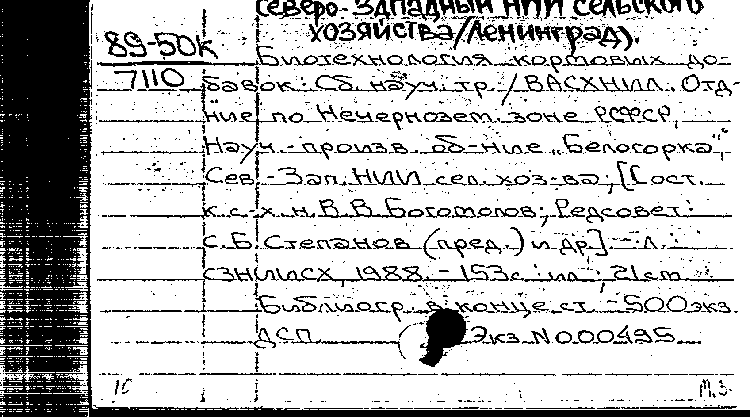 Северо-Западный НИИ сельского
хозяйства/Ленинград).
89-50к
7110
Биотехнология кормовых до-
бавок: Сб. науч. тр. / ВАСХНИЛ. Отд-
ние по Нечернозем. зоне РСФСР,
Науч.-произв. об-ние „Белогорка",
Сев.-Зап. НИИ сел. хоз-ва; [Сост.
к.с.-х.н. В.В. Богомолов; Редсовет:
С.Б. Степанов (пред.) и др.] - Л.:
СЗНИИСХ, 1988. - 153с.: ил.; 21см
Библиогр. в конце ст. - 500экз.
ДСП Экз. N 000495
10 М.З.